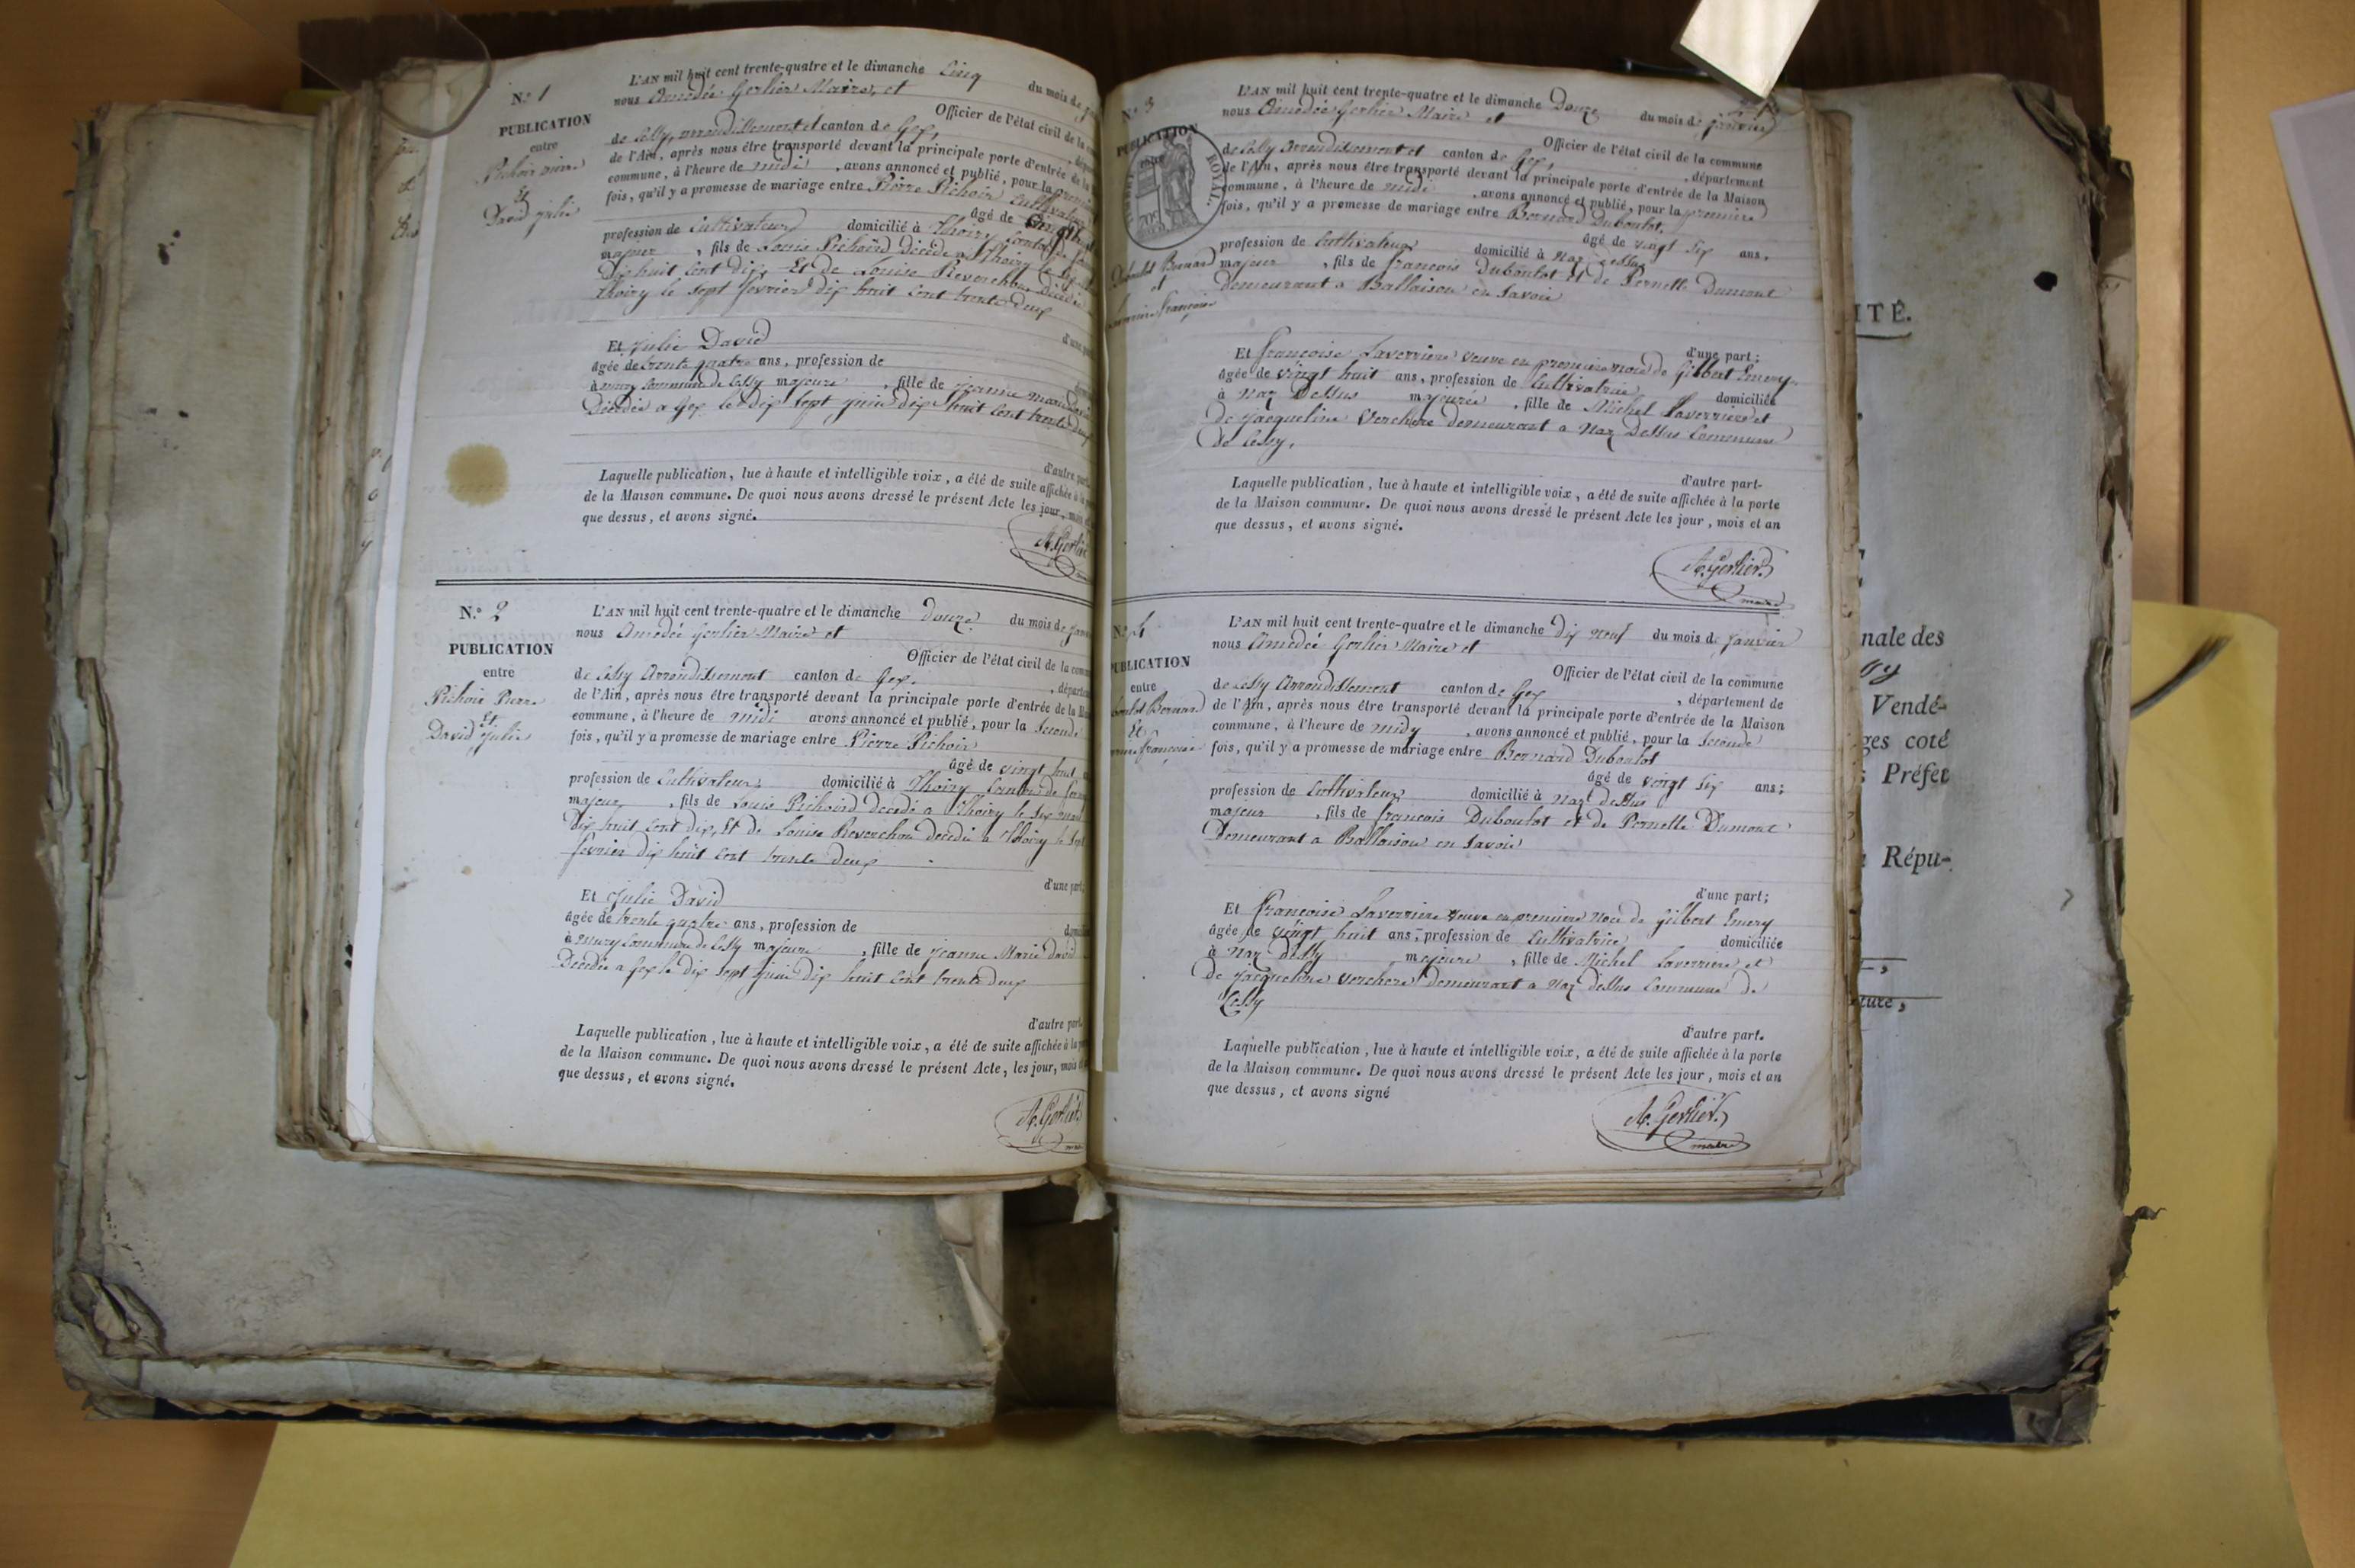 N.º 1
PUBLICATION
entre
Pichoir pierre
Et
David julie
L'AN mil huit cent trente-quatre et le dimanche Cinq du mois de
nous Amedée Gerlier Maire, et
Officier de l'état civil de la
de Cessy, arrondissement et canton de Gex,
de l'Ain, après nous être transporté devant la principale porte d'entrée de la
commune, à l'heure de midi, avons annoncé et publié, pour la premiere
fois, qu'il y a promesse de mariage entre Pierre Pichoir Cultivateur
âgé de
profession de Cultivateur domicilié à Thoiry Canton de
majeur, fils de Louis Pichoird Décédé a Thoiry le Six
Dix huit Cent dix, Et de Louise Reverchon Décédée
Thoiry le Sept fevrier dix huit Cent trente deux
d'une part
Et Julie David
âgée de trente quatre ans, profession de
à mury Commune de Cessy majeure, fille de jeanne marie
Décédée a Gex le dix Sept juin dix huit Cent trente deux
d'autre part
Laquelle publication, lue à haute et intelligible voix, a été de suite affichée à la
de la Maison commune. De quoi nous avons dressé le présent Acte les jour, mois
que dessus, et avons signé.
A. Gerlier
N.º 2
PUBLICATION
entre
Pichoir Pierre
Et
David Julie
L'AN mil huit cent trente-quatre et le dimanche douze du mois de
nous Amedée Gerlier Maire et
Officier de l'état civil de la
de Cessy Arrondissement canton de Gex.
de l'Ain, après nous être transporté devant la principale porte d'entrée de la
commune, à l'heure de midi avons annoncé et publié, pour la Seconde
fois, qu'il y a promesse de mariage entre Pierre Pichoir
âgé de vingt huit
profession de Cultivateur domicilié à Thoiry Canton de
majeur, fils de Louis Pichoird décédé a Thoiry le Six mars
Dix huit Cent dix, Et de Louise Reverchon décédée a Thoiry le Sept
fevrier dix huit Cent trente deux
d'une part;
Et Julie David
âgée de trente quatre ans, profession de
à mury Commune de Cessy majeure, fille de jeanne Marie David
Décédée a Gex le dix Sept juin dix huit Cent trente deux
d'autre part.
Laquelle publication, lue à haute et intelligible voix, a été de suite affichée à la
de la Maison commune. De quoi nous avons dressé le présent Acte, les jour, mois
que dessus, et avons signé.
A. Gerlier
N.º 3
PUBLICATION
TIMBRE ROYAL.
Duboulot Bernard
et
françoise
L'AN mil huit cent trente-quatre et le dimanche Douze du mois de janvier
nous Amedée Gerlier Maire et
Officier de l'état civil de la commune
de Cessy arrondissement et canton de Gex, département
de l'Ain, après nous être transporté devant la principale porte d'entrée de la Maison
commune, à l'heure de midi, avons annoncé et publié, pour la premiere
fois, qu'il y a promesse de mariage entre Bernard Duboulot,
âgé de vingt Six ans,
profession de Cultivateur domicilié à Naz dessus
majeur, fils de françois Duboulot et de Pernette Dumont
demeurant a Ballaison en Savoie
d'une part;
Et françoise Laverriere veuve en premiere noce de Gilbert Emery
âgée de vingt huit ans, profession de Cultivatrice domiciliée
à Naz Dessus majeure, fille de Michel Laverriere et
de jacqueline Verchere demeurant a Naz Dessus Commune
de Cessy,
d'autre part-
Laquelle publication, lue à haute et intelligible voix, a été de suite affichée à la porte
de la Maison commune. De quoi nous avons dressé le présent Acte les jour, mois et an
que dessus, et avons signé.
A. Gerlier
maire
N.º 4
PUBLICATION
entre
Bernard
Et
françoise
L'AN mil huit cent trente-quatre et le dimanche dix neuf du mois de janvier
nous Amedée Gerlier Maire et
Officier de l'état civil de la commune
de Cessy Arrondissement canton de Gex, département de
de l'Ain, après nous être transporté devant la principale porte d'entrée de la Maison
commune, à l'heure de midy, avons annoncé et publié, pour la Seconde
fois, qu'il y a promesse de mariage entre Bernard Duboulot
âgé de vingt Six ans;
profession de Cultivateur domicilié à Naz dessus
majeur, fils de françois Duboulot et de Pernette Dumont
Demeurant a Ballaison en Savoie
d'une part;
Et françoise Laverriere veuve en premiere noce de Gilbert Emery
âgée de vingt huit ans, profession de Cultivatrice domiciliée
à Naz majeure, fille de Michel Laverriere et
de jacqueline Verchere demeurant a Naz dessus Commune de
Cessy
d'autre part.
Laquelle publication, lue à haute et intelligible voix, a été de suite affichée à la porte
de la Maison commune. De quoi nous avons dressé le présent Acte les jour, mois et an
que dessus, et avons signé
A. Gerlier
maire
ITÉ.
nale des
Vendé-
ges coté
Préfet
Répu-